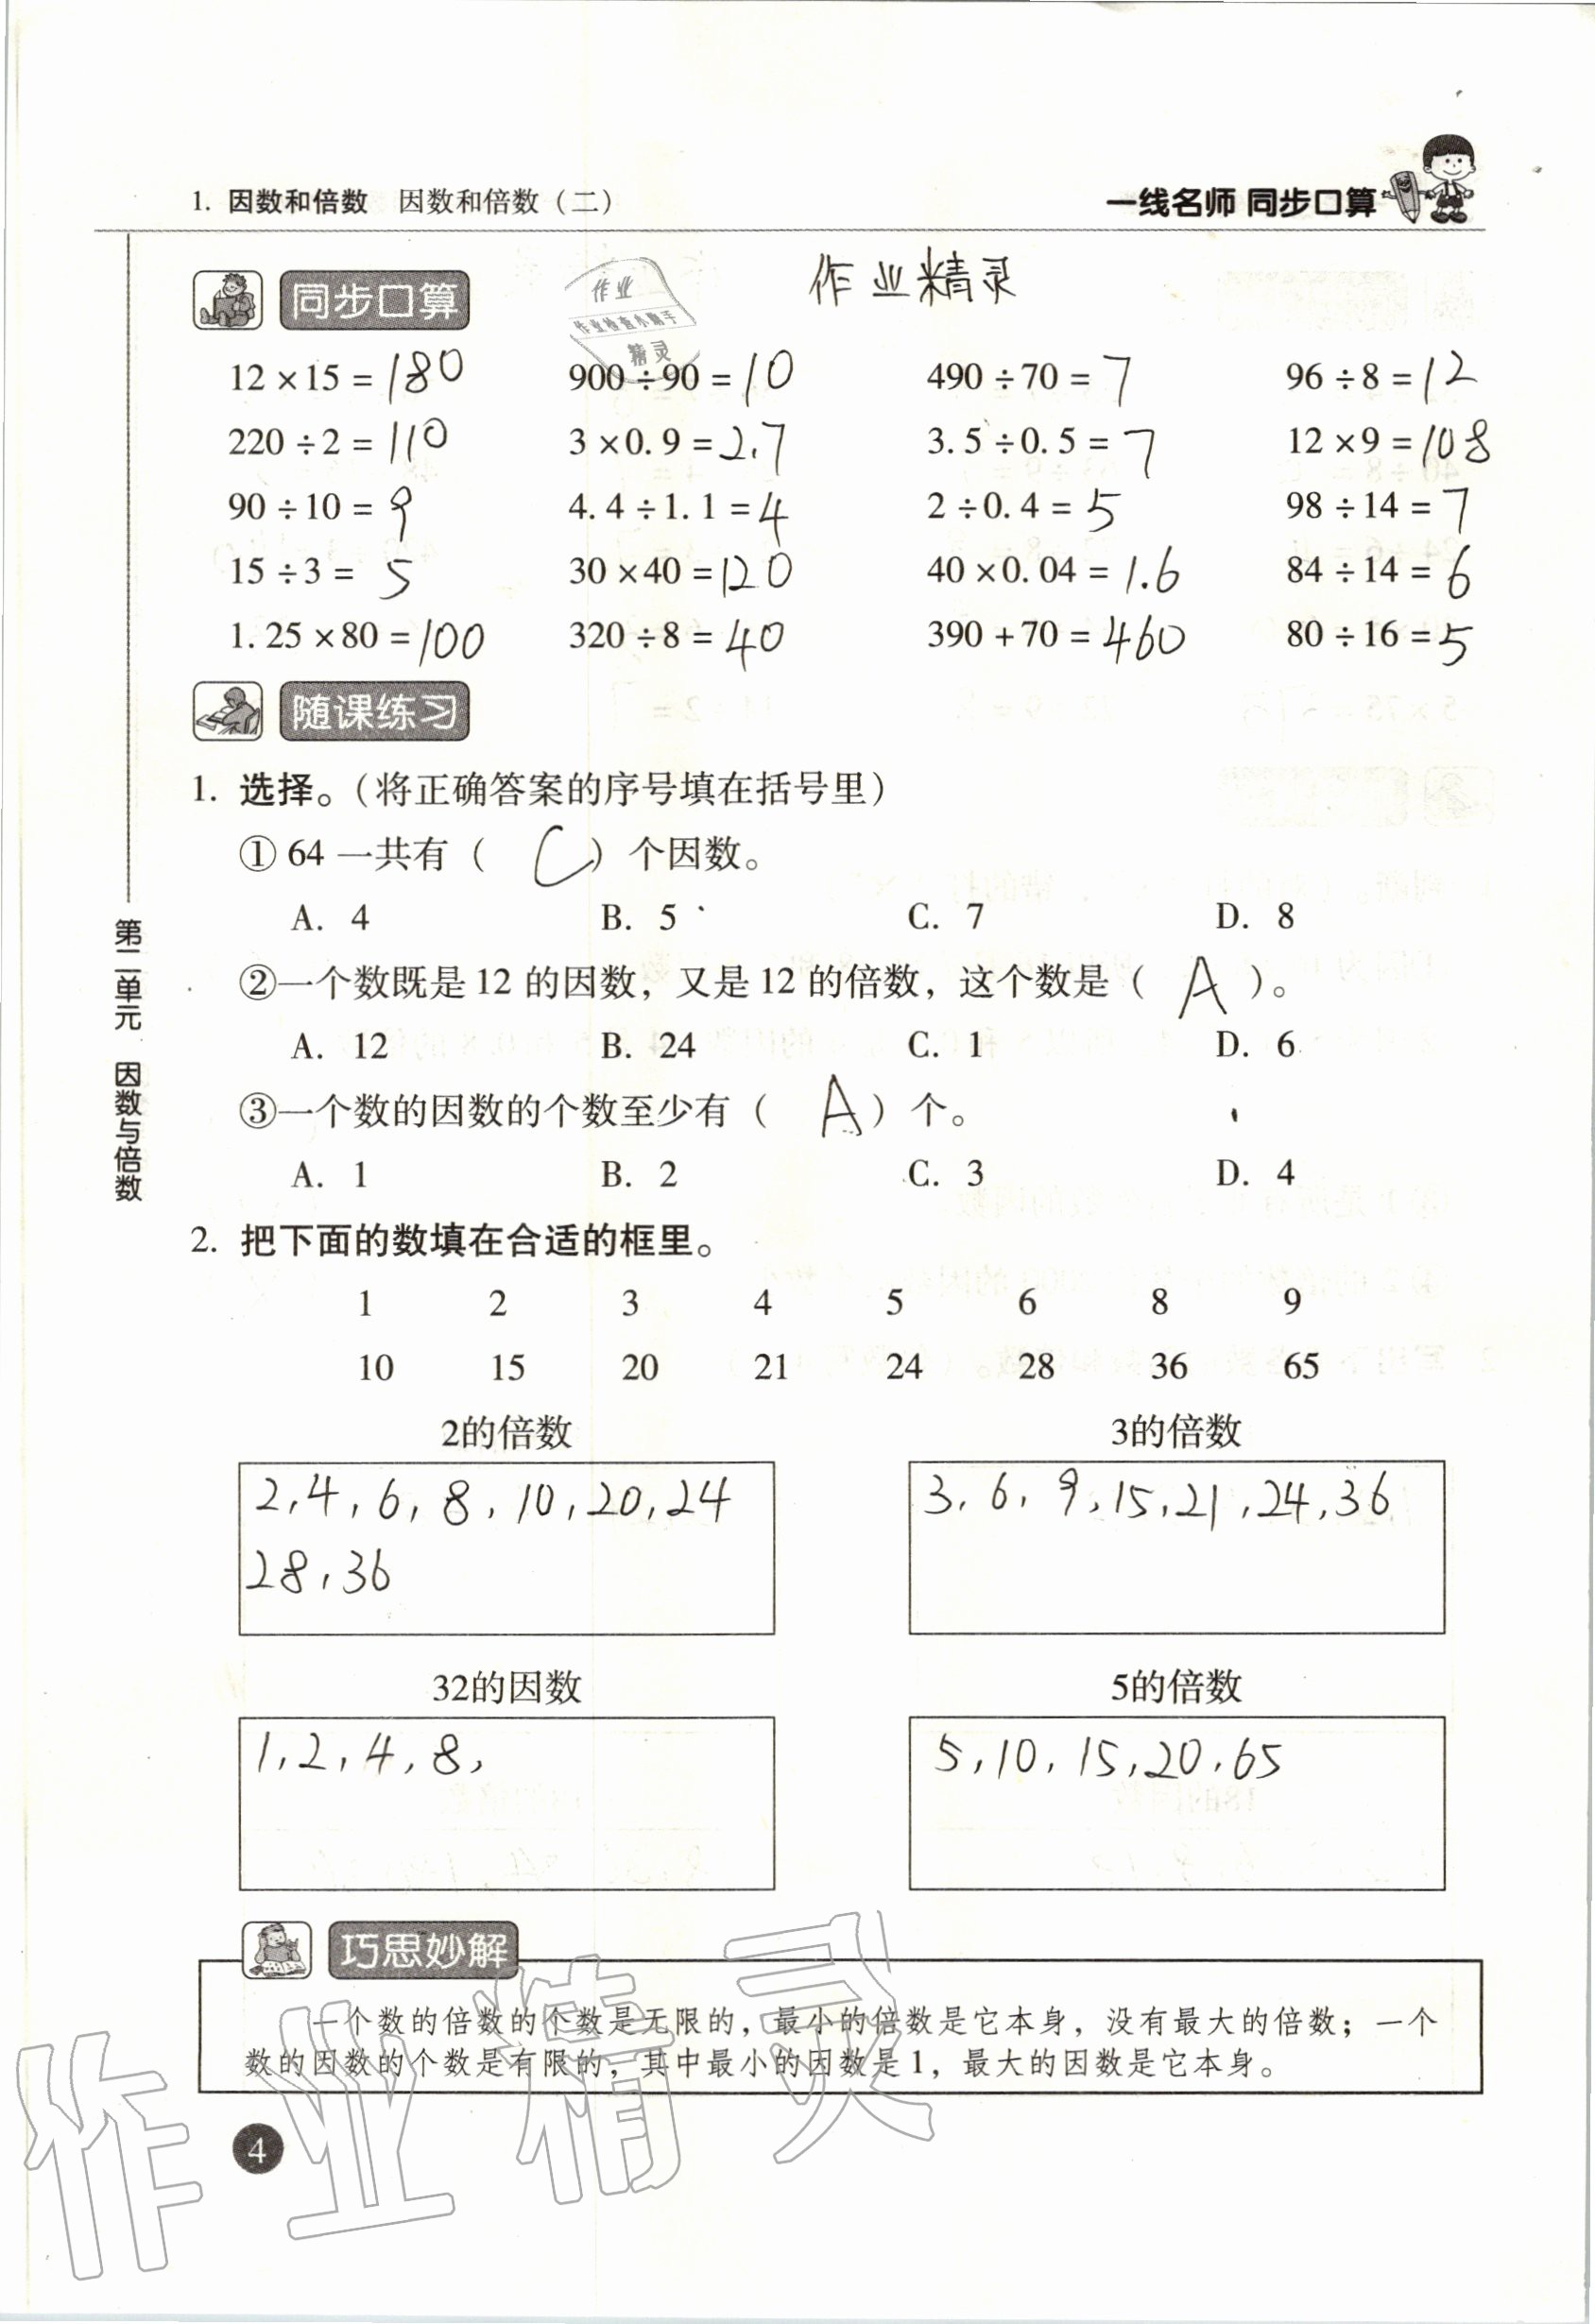 1. 因数和倍数 因数和倍数(二)
一线名师 同步口算
同步口算
作业
作业检查小助手
精灵
作业精灵
12×15=180 900÷90=10 490÷70=7 96÷8=12
220÷2=110 3×0.9=2.7 3.5÷0.5=7 12×9=108
90÷10=9 4.4÷1.1=4 2÷0.4=5 98÷14=7
15÷3=5 30×40=120 40×0.04=1.6 84÷14=6
1.25×80=100 320÷8=40 390+70=460 80÷16=5
随课练习
1. 选择。(将正确答案的序号填在括号里)
①64一共有( C )个因数。
A. 4 B. 5 C. 7 D. 8
②一个数既是12的因数，又是12的倍数，这个数是( A )。
A. 12 B. 24 C. 1 D. 6
③一个数的因数的个数至少有( A )个。
A. 1 B. 2 C. 3 D. 4
第二单元 因数与倍数
2. 把下面的数填在合适的框里。
1 2 3 4 5 6 8 9
10 15 20 21 24 28 36 65
2的倍数 3的倍数
2,4,6,8,10,20,24 3,6,9,15,21,24,36
28,36
32的因数 5的倍数
1,2,4,8, 5,10,15,20,65
巧思妙解
一个数的倍数的个数是无限的，最小的倍数是它本身，没有最大的倍数；一个
数的因数的个数是有限的，其中最小的因数是1，最大的因数是它本身。
作业精灵
4